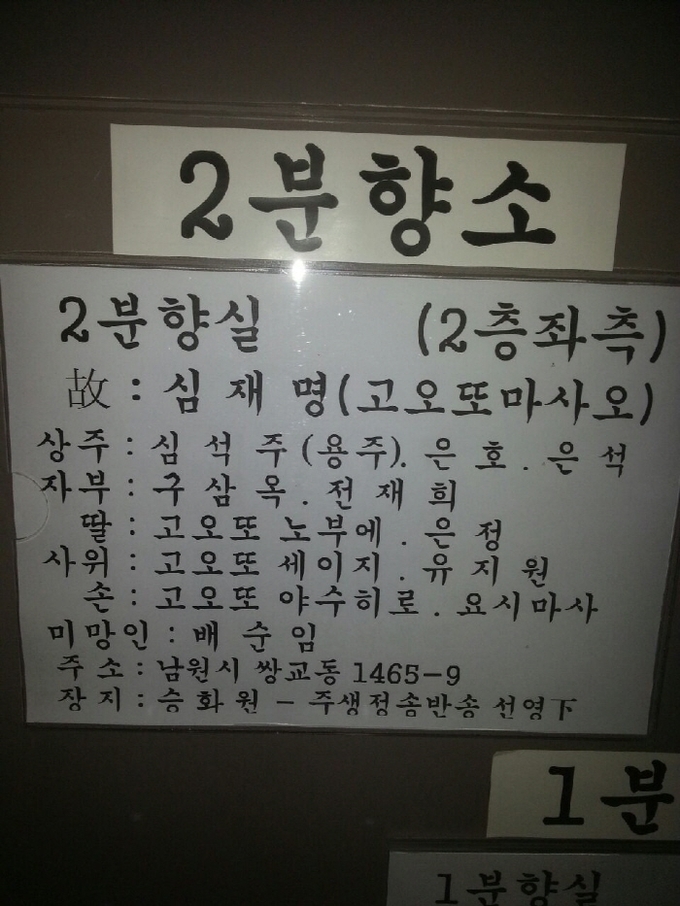 2분향소
2분향실 (2층좌측)
故 : 심 재 명(고오또마사오)
상주 : 심 석 주 (용주). 은 호 . 은 석
자부 : 구 삼 옥 . 전 재 희
딸 : 고오또 노부에 . 은 정
사위 : 고오또 세이지 . 유 지 원
손 : 고오또 야수히로 . 요시마사
미망인 : 배 순 임
주 소 : 남원시 쌍교동 1465-9
장 지 : 승 화 원 - 주생정송반송 선영下
1분
1분향실